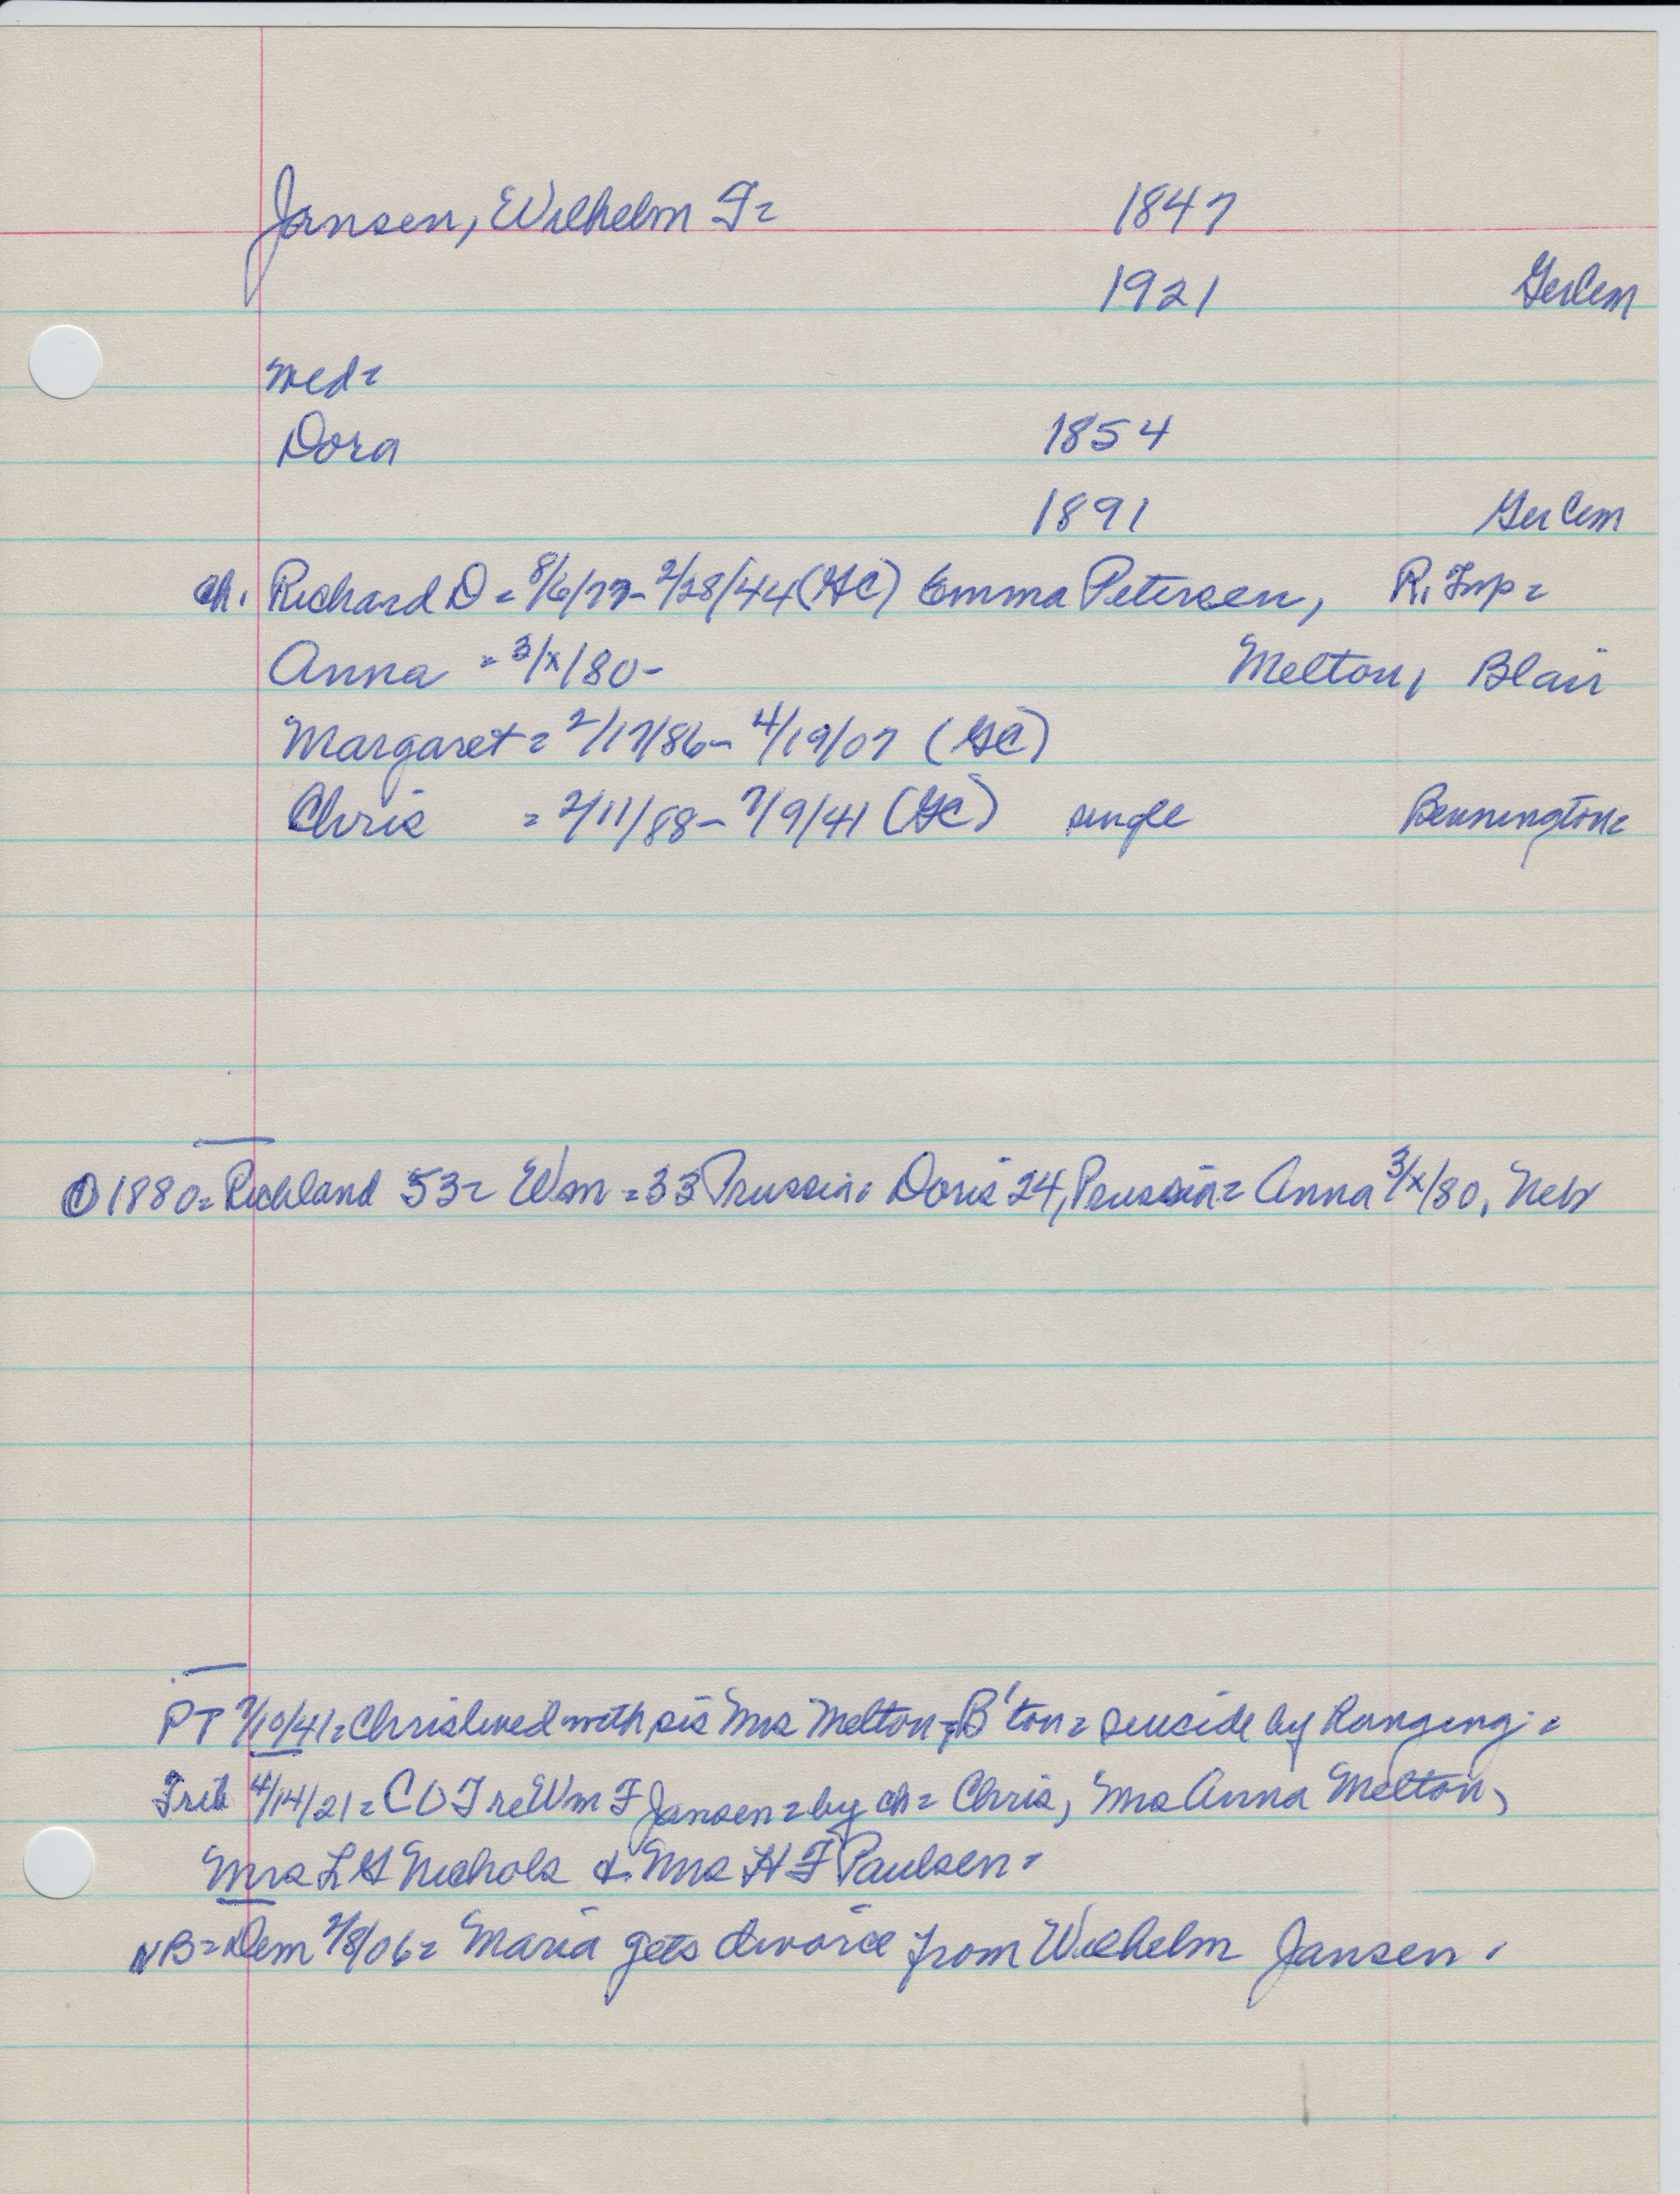 Jansen, Wilhelm F= 1847
1921 GerCem
med=
Dora 1854
1891 Ger Cem
ch. Richard D = 8/6/77- 2/28/44 (GC) Emma Petersen, R. Twp=
Anna = 3/x/80- Melton, Blair
Margaret = 2/17/86- 4/19/07 (GC)
Chris = 2/11/88- 7/9/41 (GC) single Bennington=
① 1880= Richland 53= Wm = 33 Prussia. Doris 24, Prussia= Anna 3/x/80, Nebr
PT 7/10/41= Chris lived with sis Mrs Melton, B'ton= suicide by hanging=
Trib 4/14/21= COT re Wm F Jansen= by ch= Chris, Mrs Anna Melton,
Mrs L G Nichols & Mrs H F Paulsen.
NB= Dem 2/8/06= Maria gets divorce from Wilhelm Jansen.